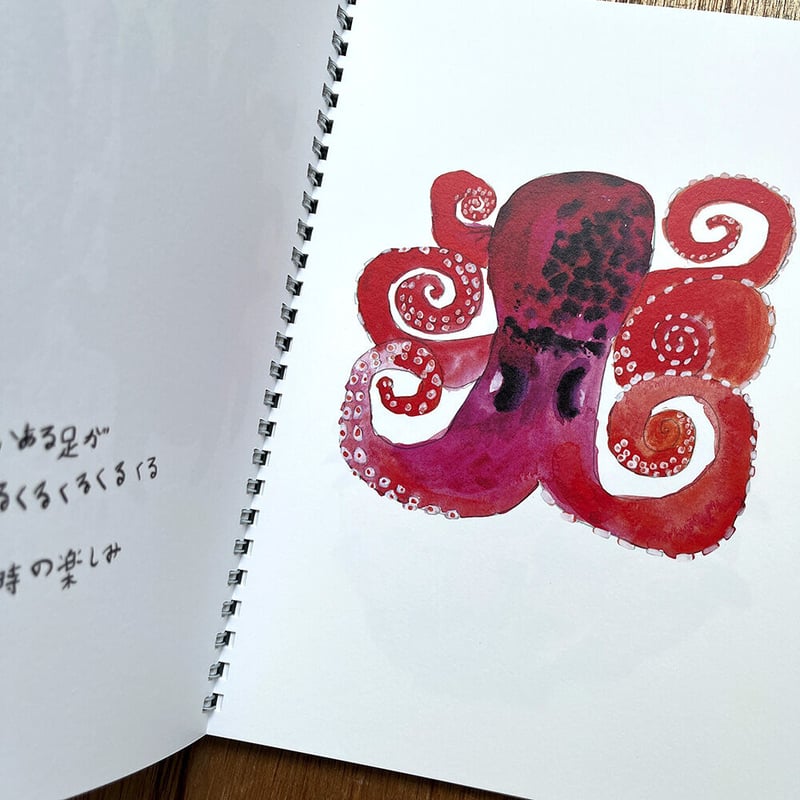 ある足が
るくるくるくるくる
時の楽しみ